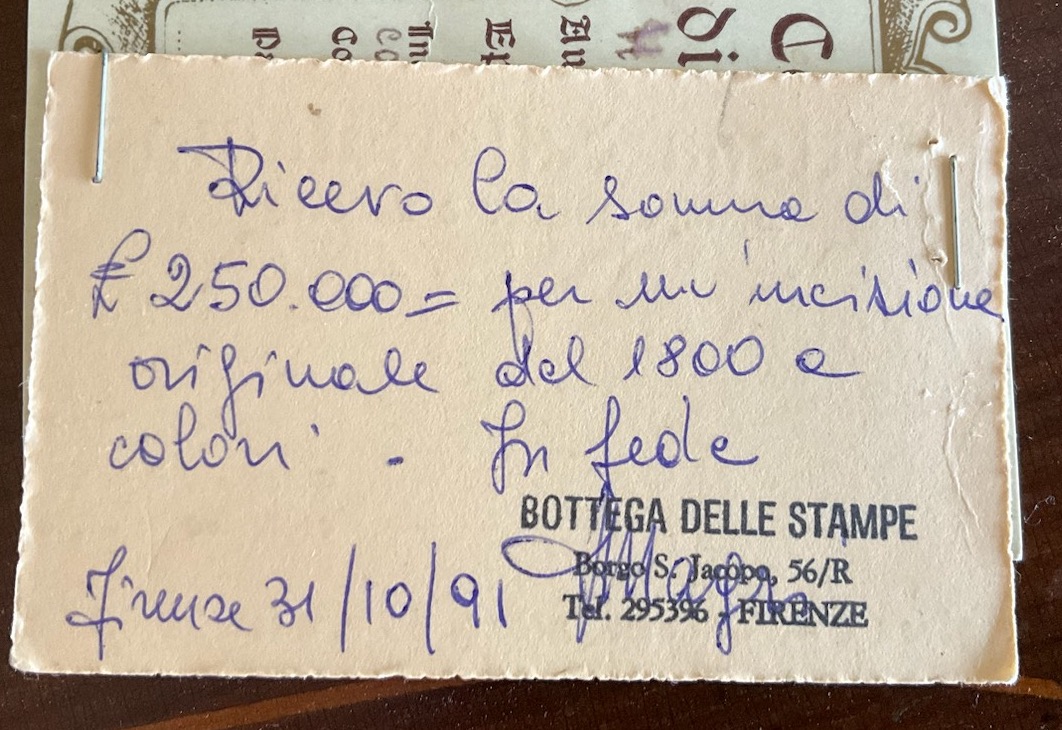 Ricevo la somma di
£ 250.000= per un'incisione
originale del 1800 a
colori. In fede
BOTTEGA DELLE STAMPE
Borgo S. Jacopo, 56/R
Tel. 295396 - FIRENZE
Firenze 31/10/91